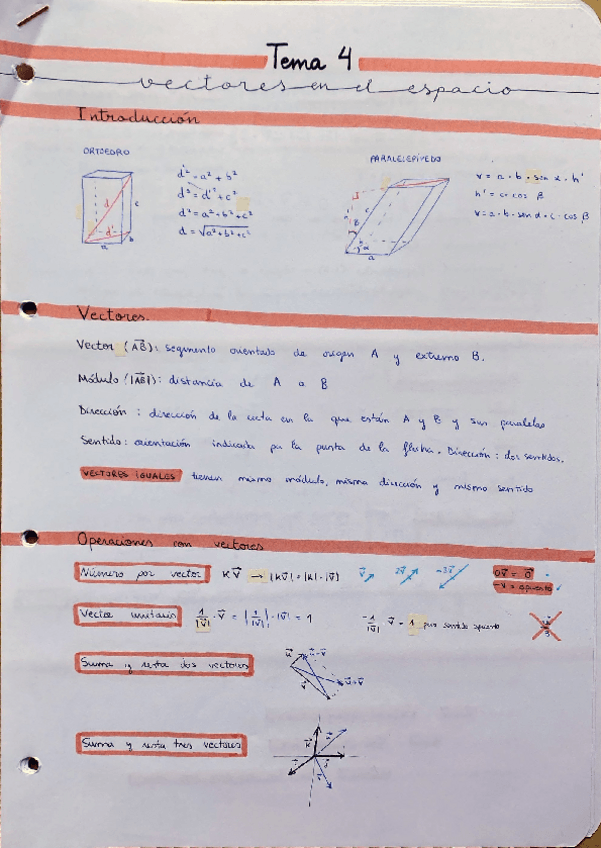 Tema 4
vectores en el espacio
Introducción
ORTOEDRO
d'² = a² + b²
d² = d'² + c²
d² = a² + b² + c²
d = √a² + b² + c²
d
d'
c
a
b
PARALELEPÍPEDO
v = a · b · sen α · h'
h' = c · cos β
v = a · b · sen α · c · cos β
c
β
α
b
a
Vectores
Vector (AB): segmento orientado de origen A y extremo B.
Módulo (|AB|): distancia de A a B
Dirección : dirección de la recta en la que están A y B y sus paralelas
Sentido: orientación indicada por la punta de la flecha. Dirección: dos sentidos.
VECTORES IGUALES tienen mismo módulo, misma dirección y mismo sentido
Operaciones con vectores
Número por vector K v → |K v| = |K| · |v| v 2v -3v 0v = 0
-v = opuesto
Vector unitario 1/|v| · v = |1/|v|| · |v| = 1 -1/|v| v = 1 pero sentido opuesto
Suma y resta dos vectores
Suma y resta tres vectores